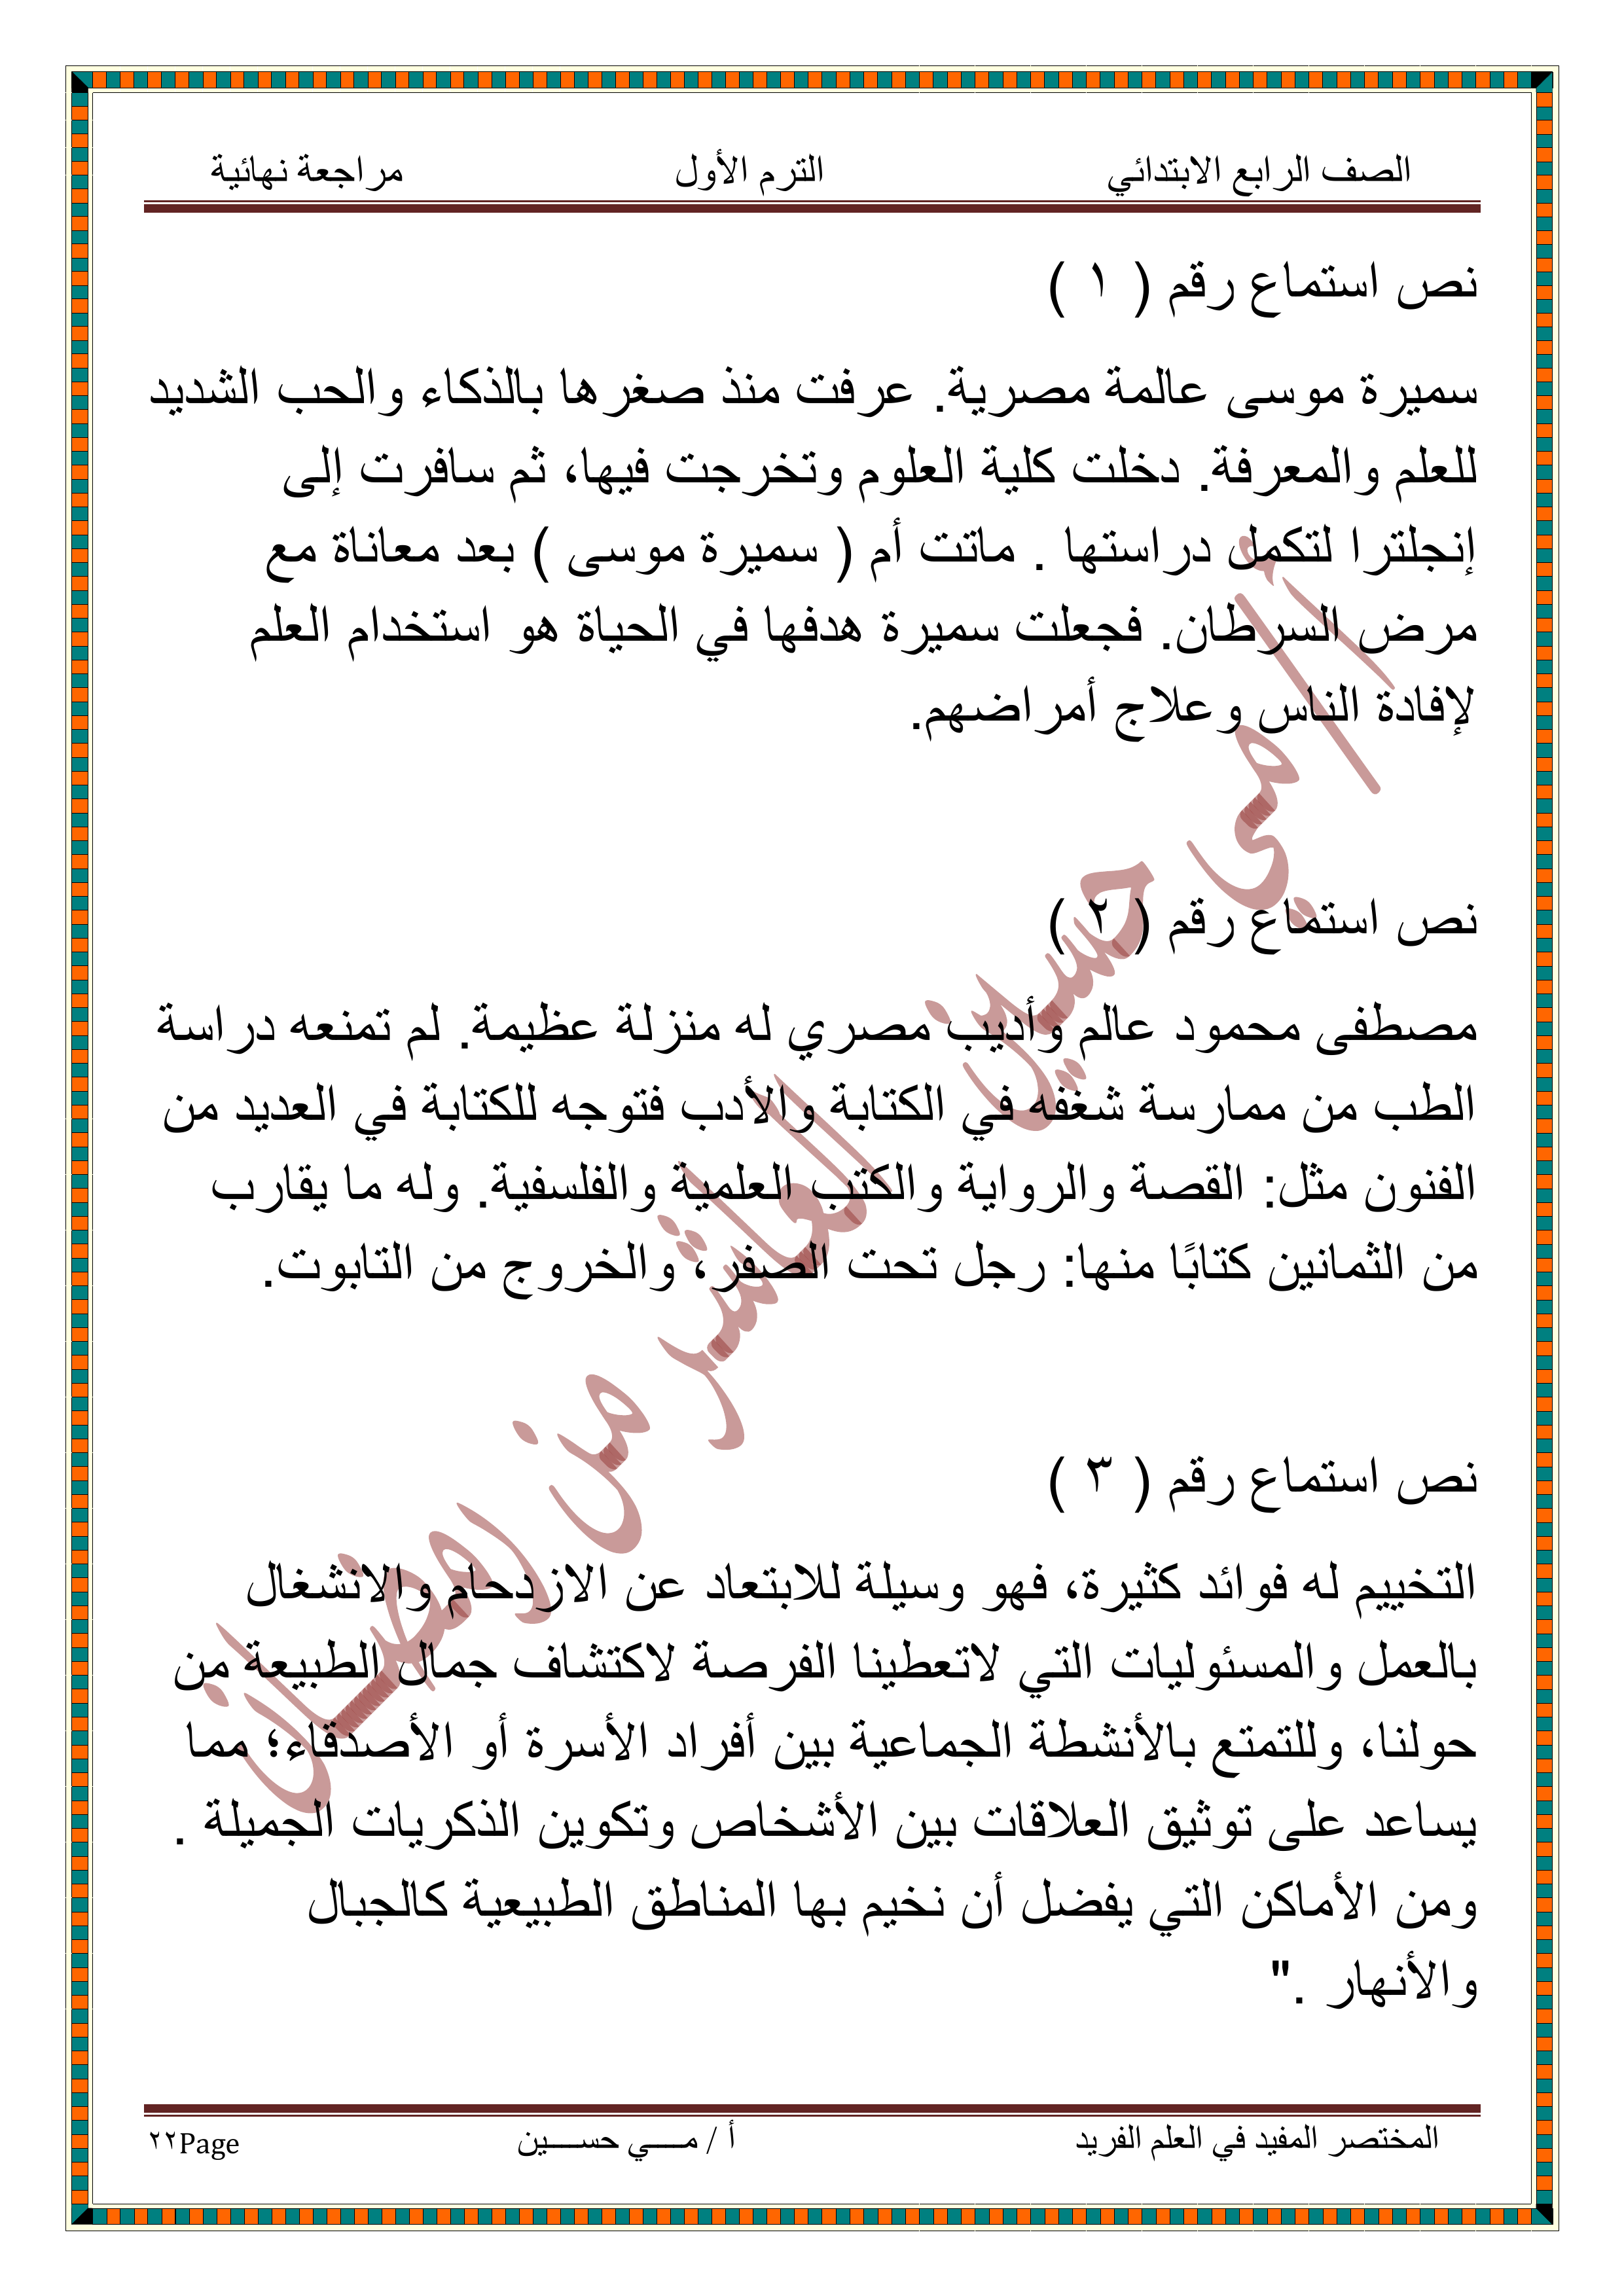 الصف الرابع الابتدائي الترم الأول مراجعة نهائية
نص استماع رقم ( ١ )
سميرة موسى عالمة مصرية. عرفت منذ صغرها بالذكاء والحب الشديد
للعلم والمعرفة. دخلت كلية العلوم وتخرجت فيها، ثم سافرت إلى
إنجلترا لتكمل دراستها . ماتت أم ( سميرة موسى ) بعد معاناة مع
مرض السرطان. فجعلت سميرة هدفها في الحياة هو استخدام العلم
لإفادة الناس وعلاج أمراضهم.
نص استماع رقم ( ٢ )
مصطفى محمود عالم وأديب مصري له منزلة عظيمة. لم تمنعه دراسة
الطب من ممارسة شغفه في الكتابة والأدب فتوجه للكتابة في العديد من
الفنون مثل: القصة والرواية والكتب العلمية والفلسفية. وله ما يقارب
من الثمانين كتابًا منها: رجل تحت الصفر، والخروج من التابوت.
نص استماع رقم ( ٣ )
التخييم له فوائد كثيرة، فهو وسيلة للابتعاد عن الازدحام والانشغال
بالعمل والمسئوليات التي لاتعطينا الفرصة لاكتشاف جمال الطبيعة من
حولنا، وللتمتع بالأنشطة الجماعية بين أفراد الأسرة أو الأصدقاء؛ مما
يساعد على توثيق العلاقات بين الأشخاص وتكوين الذكريات الجميلة .
ومن الأماكن التي يفضل أن نخيم بها المناطق الطبيعية كالجبال
والأنهار ."
أ/ مي حسين العاشر من رمضان
المختصر المفيد في العلم الفريد أ / مـــي حســـين ٢٢Page